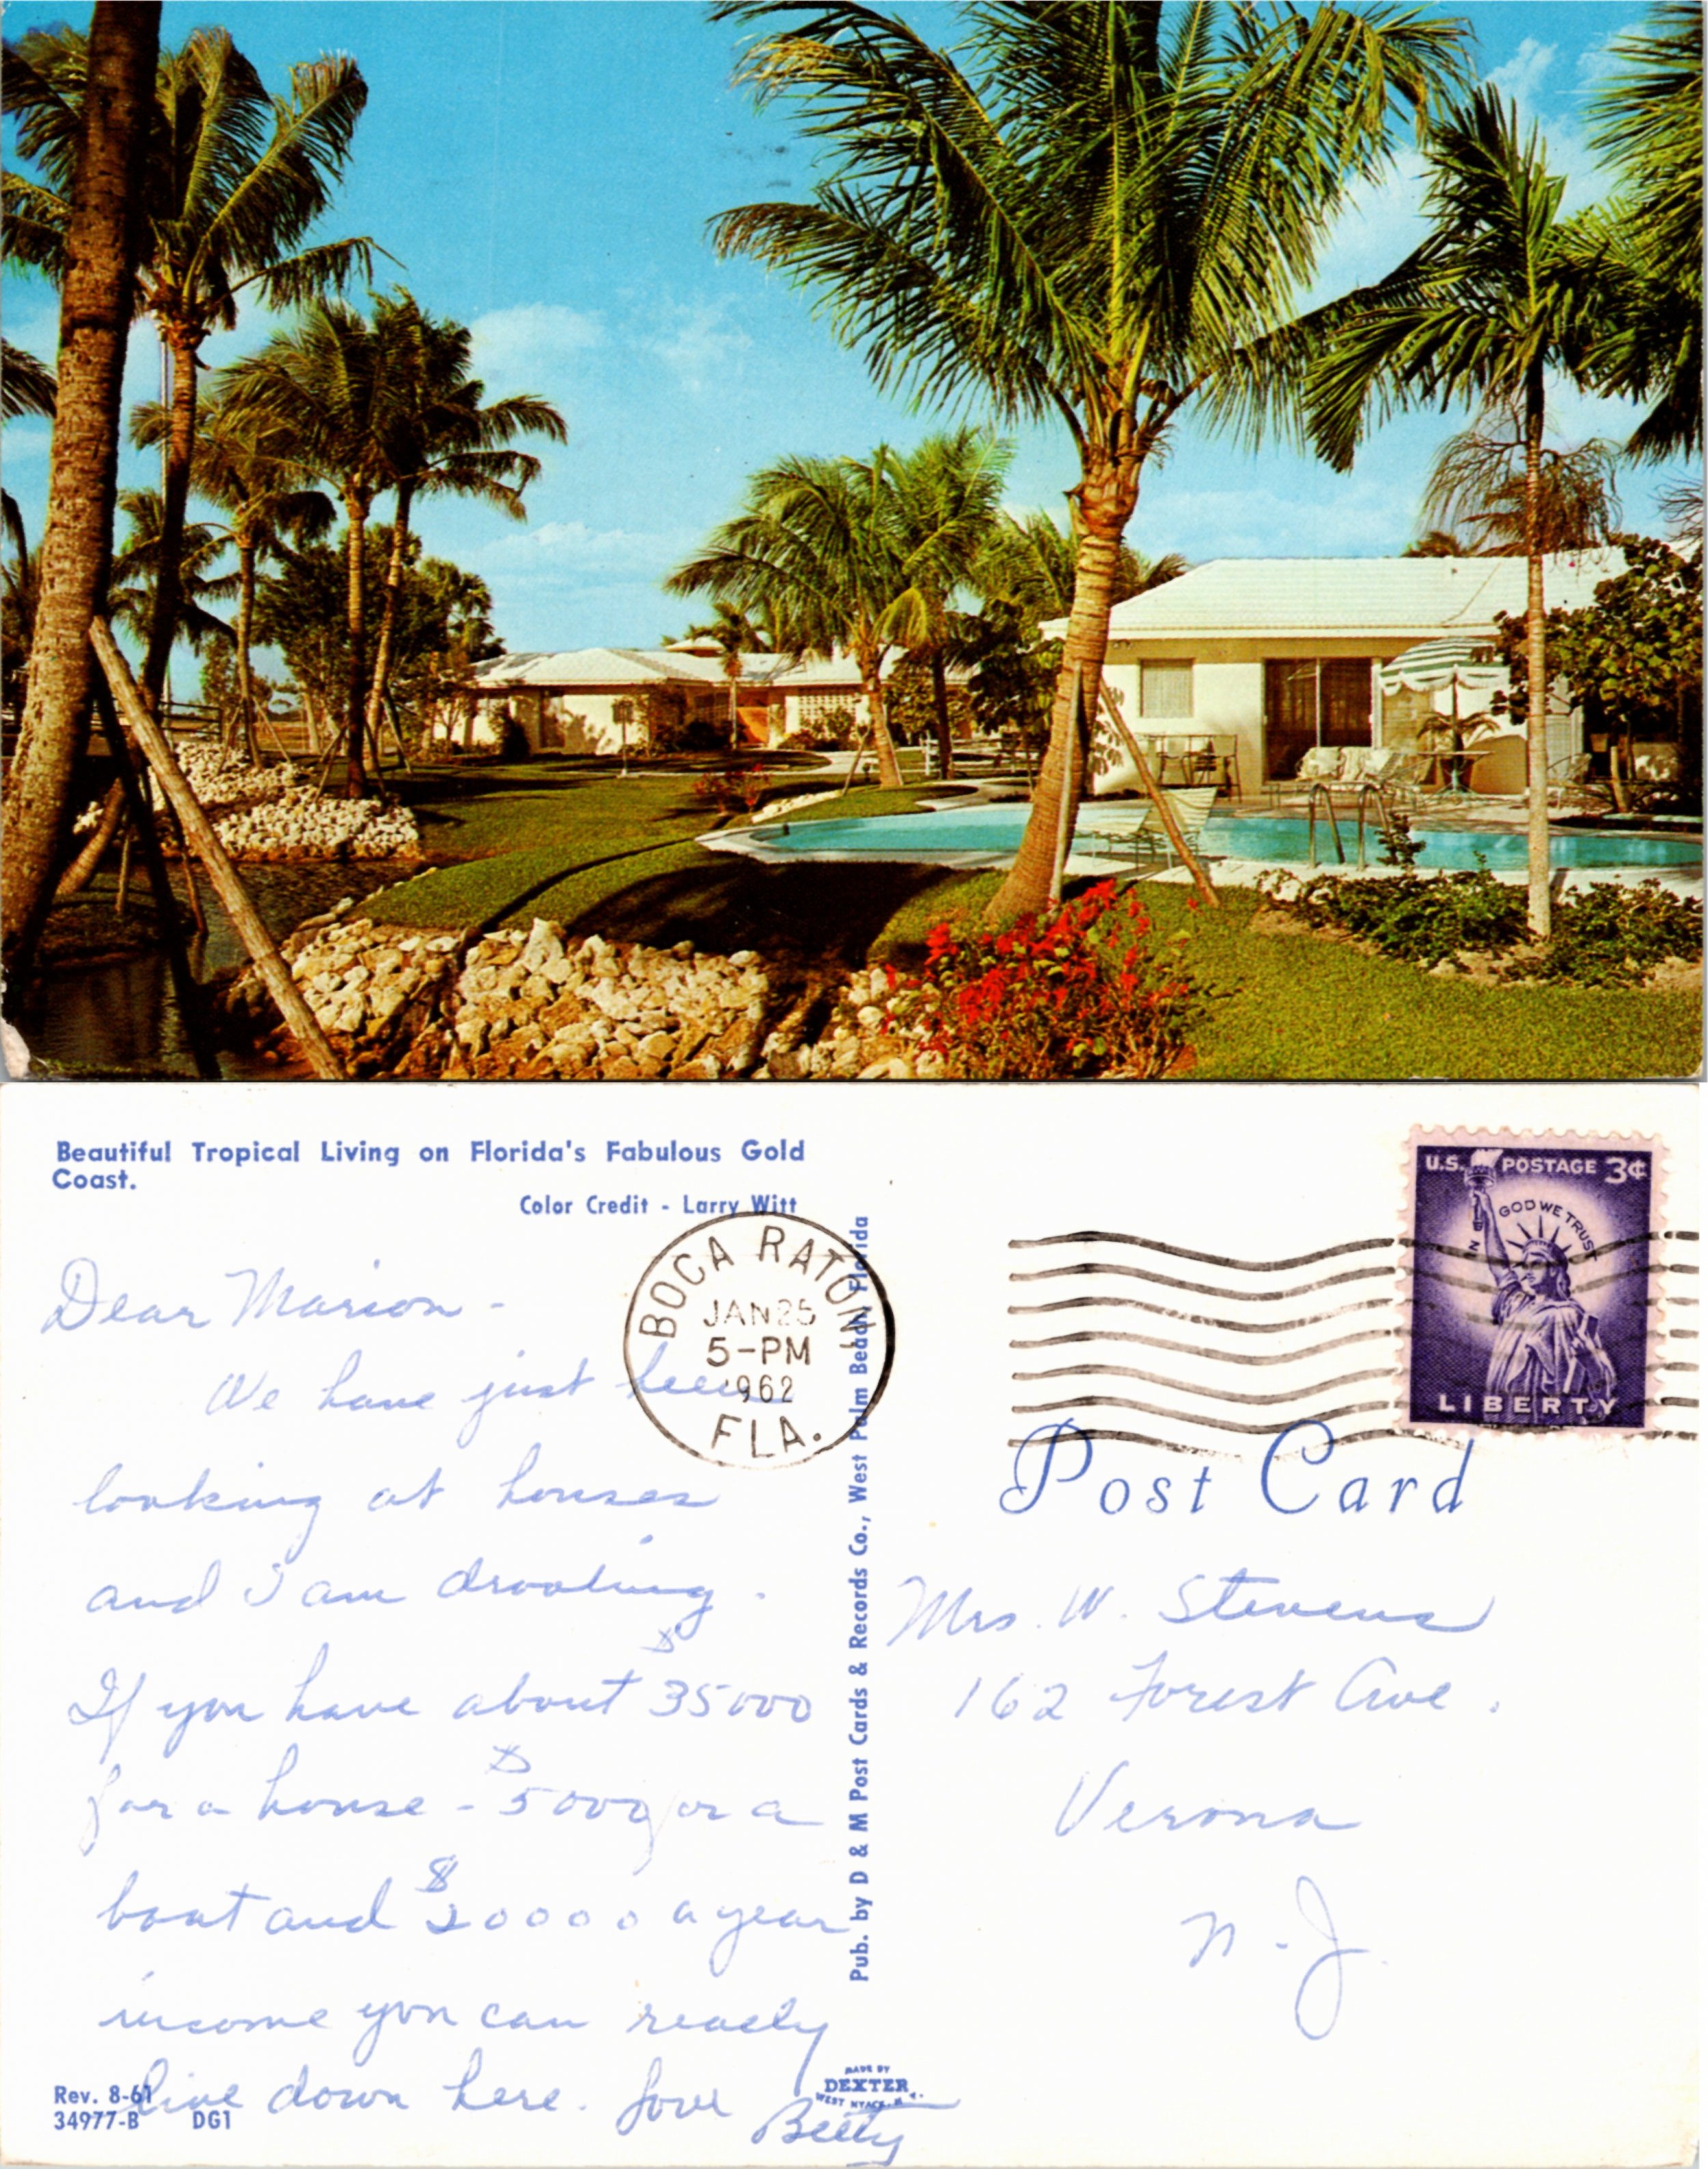 Beautiful Tropical Living on Florida's Fabulous Gold
Coast.
Color Credit - Larry Witt
Dear Marion -
We have just been
looking at houses
and I am drooling.
If you have about $35000
for a house - $5000 for a
boat and $20000 a year
income you can really
live down here. Love
Betty
Rev. 8-61
34977-B DG1
BOCA RATON
JAN 25
5-PM
1962
FLA.
Pub. by D & M Post Cards & Records Co., West Palm Beach, Florida
MADE BY
DEXTER
WEST NYACK, N.Y.
U.S. POSTAGE 3¢
IN GOD WE TRUST
LIBERTY
Post Card
Mrs. W. Stevens
162 Forest Ave.
Verona
N.J.